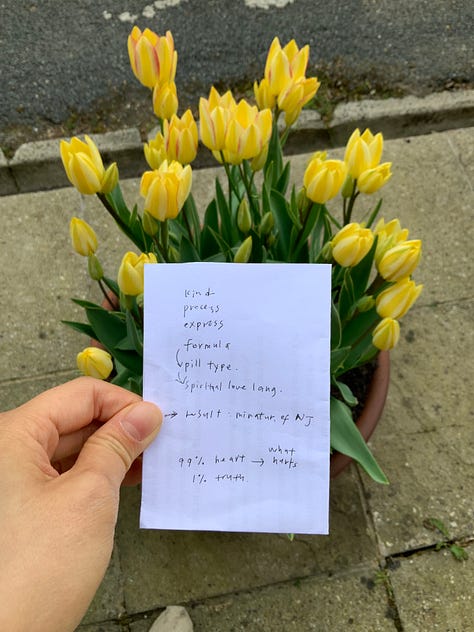 kind
process
express
formula
pill type.
spiritual love lang.
→ result : miniatur. of NJ
what
99% heart → hurts
1% truth.